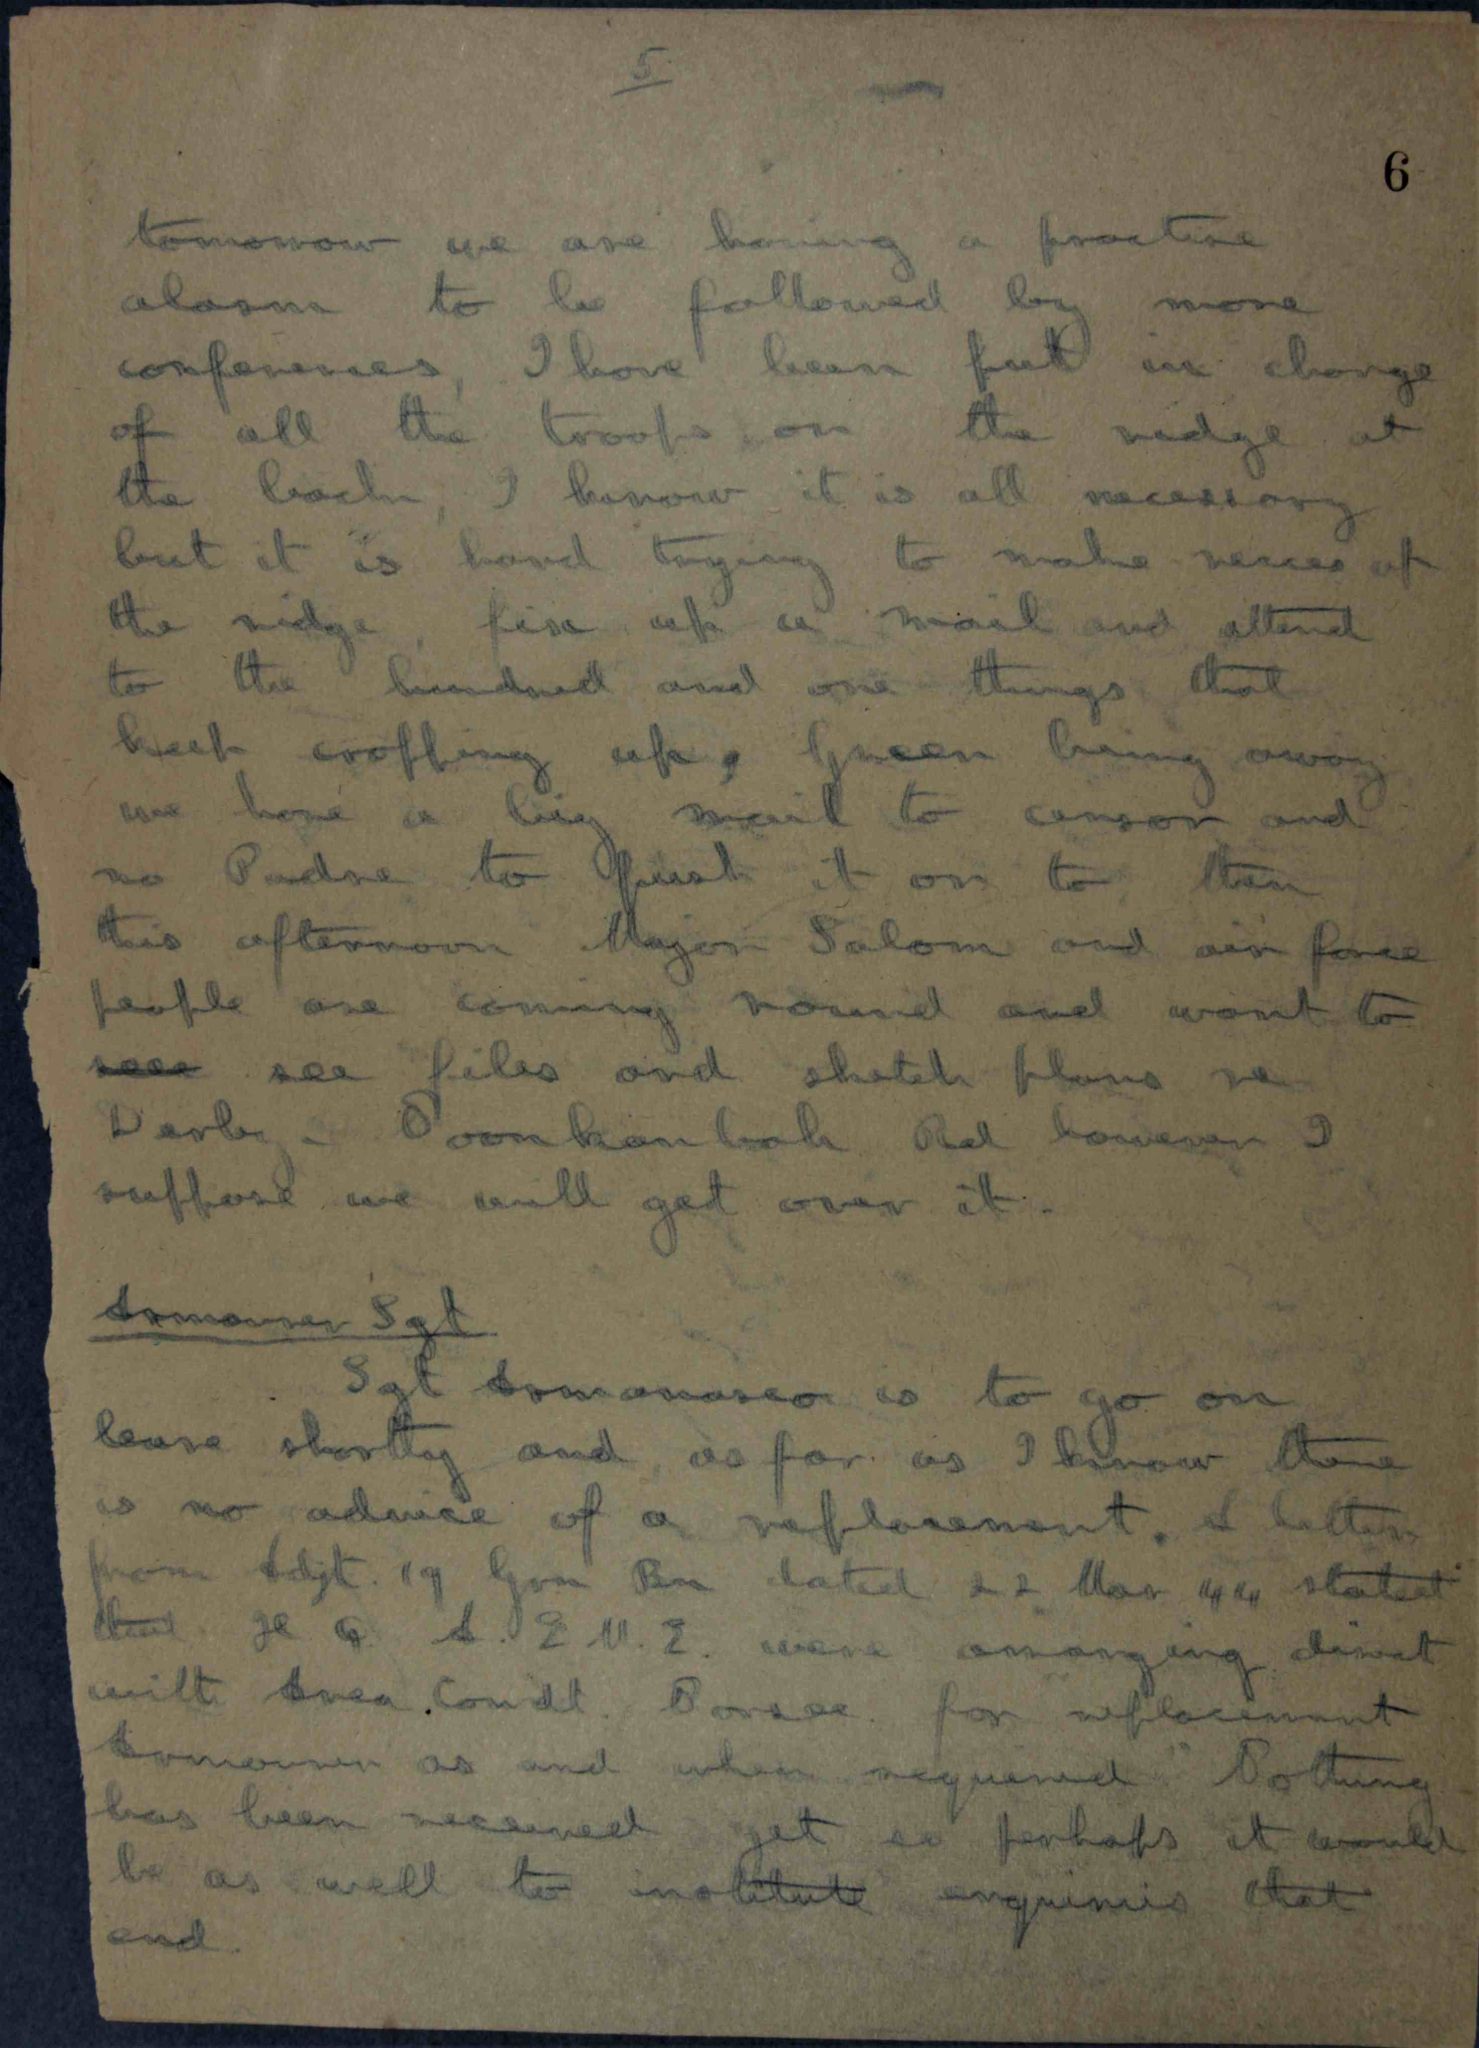 5
6
tomorrow we are having a practise
alarm to be followed by more
conferences, I have been put in charge
of all the troops on the ridge at
the back, I know it is all necessary
but it is hard trying to make recces of
the ridge, fix up a mail and attend
to the hundred and one things that
keep cropping up, Green being away
we have a big mail to censor and
no Padre to push it on to then
this afternoon Major Salom and air force
people are coming round and want to
seee see files and sketch plans re
Derby - Noonkanbah Rd however I
suppose we will get over it.
Armourer Sgt
Sgt is to go on
leave shortly and as far as I know there
is no advice of a replacement. A letter
from Adjt. 19 Grn Bn dated 22 Mar 44 stated
that H Q A.E.M.E. were arranging direct
with Area Comdt. for replacement
Armourer as and when required" Nothing
has been received yet so perhaps it would
be as well to institute enquiries that
end.